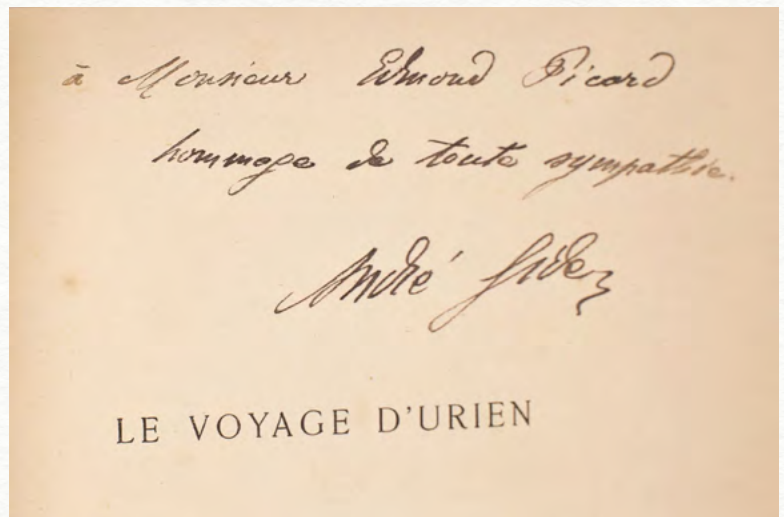 à Monsieur Edmond Picard
hommage de toute sympathie.
André Gide
LE VOYAGE D'URIEN